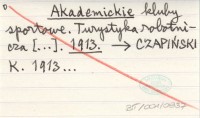 Akademickie kluby
sportowe. Turystyka robotni-
cza [...]. 1913. → CZAPIŃSKI
K. 1913...